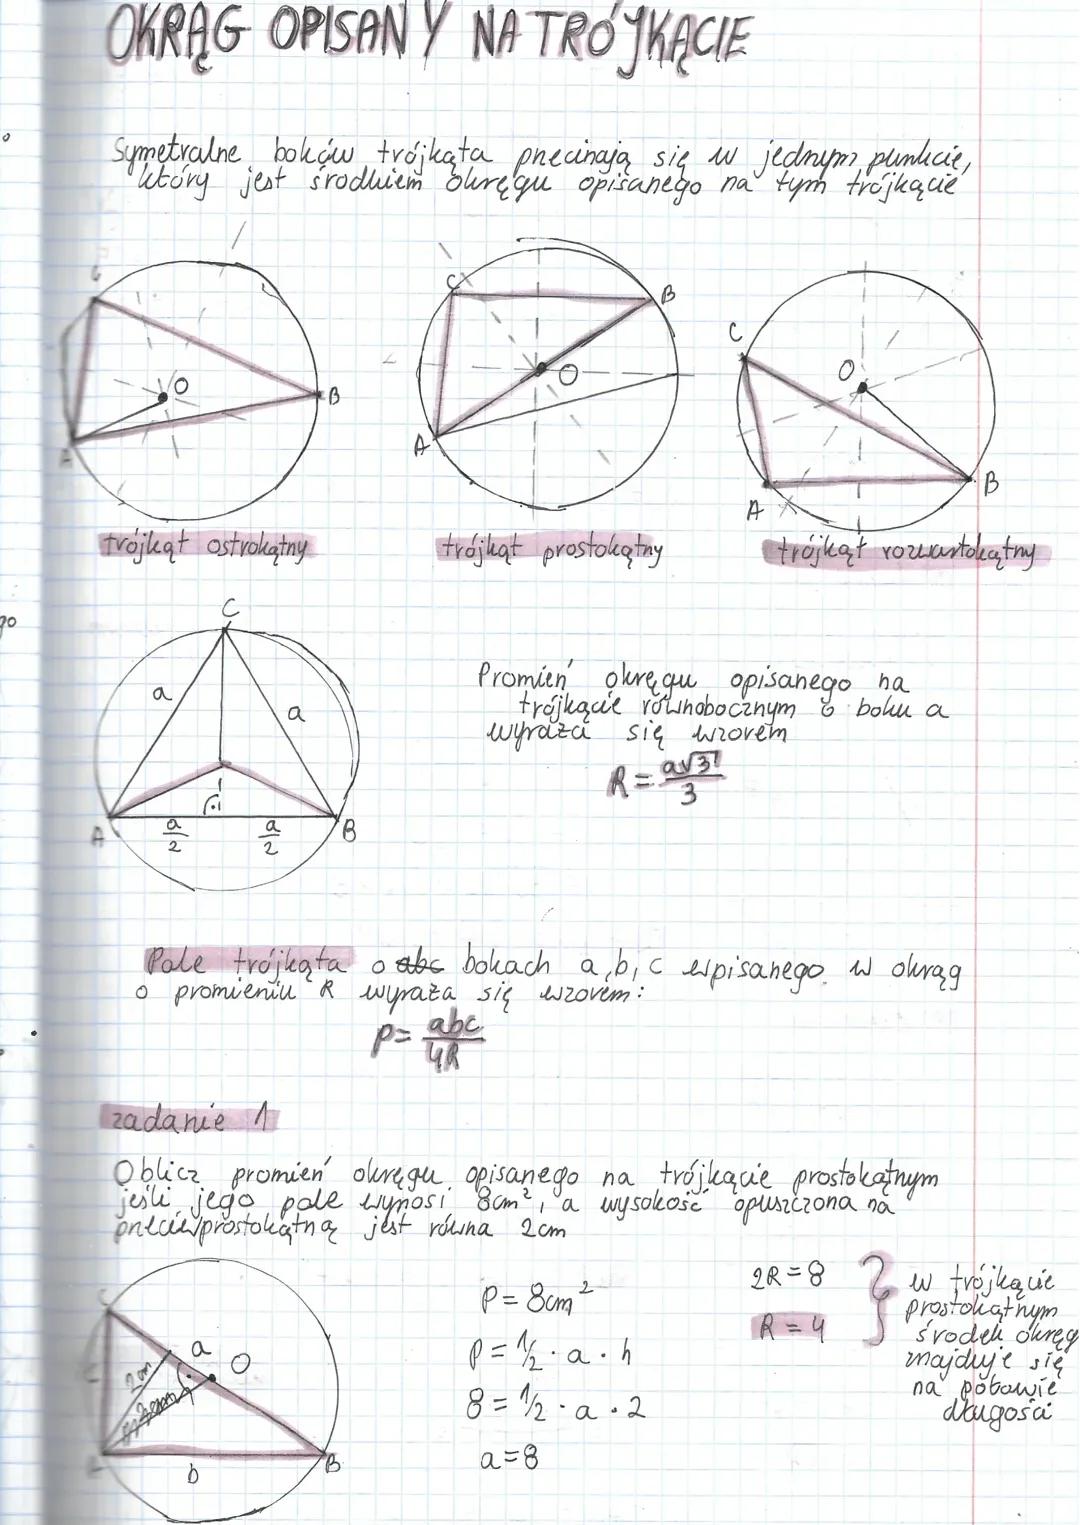 OKRĄG OPISANY NA TRÓJKĄCIE
Symetralne boków trójkąta przecinają się w jednym punkcie,
który jest środkiem okręgu opisanego na tym trójkącie
C
O
B
A
C
B
O
A
C
O
B
A
trójkąt ostrokątny
trójkąt prostokątny
trójkąt rozwartokątny
C
a
a
A
a/2
a/2
B
Promień okręgu opisanego na
trójkącie równobocznym o boku a
wyraża się wzorem
R = a√3/3
Pole trójkąta o abc bokach a, b, c wpisanego w okrąg
o promieniu R wyraża się wzorem:
P = abc/4R
zadanie 1
Oblicz promień okręgu opisanego na trójkącie prostokątnym
jeśli jego pole wynosi 8cm², a wysokość opuszczona na
przeciwprostokątną jest równa 2cm
C
a
O
2cm
c
A
b
B
P = 8cm²
P = 1/2 · a · h
8 = 1/2 · a · 2
a = 8
2R = 8
R = 4
w trójkącie
prostokątnym
środek okręg
znajduje się
na połowie
długości